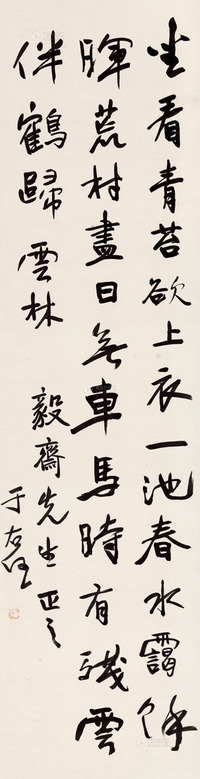 坐看青苔欲上衣一池春水靄餘
暉荒村盡日無車馬時有殘雲
伴鶴歸 雲林
毅齋先生正之
于右任